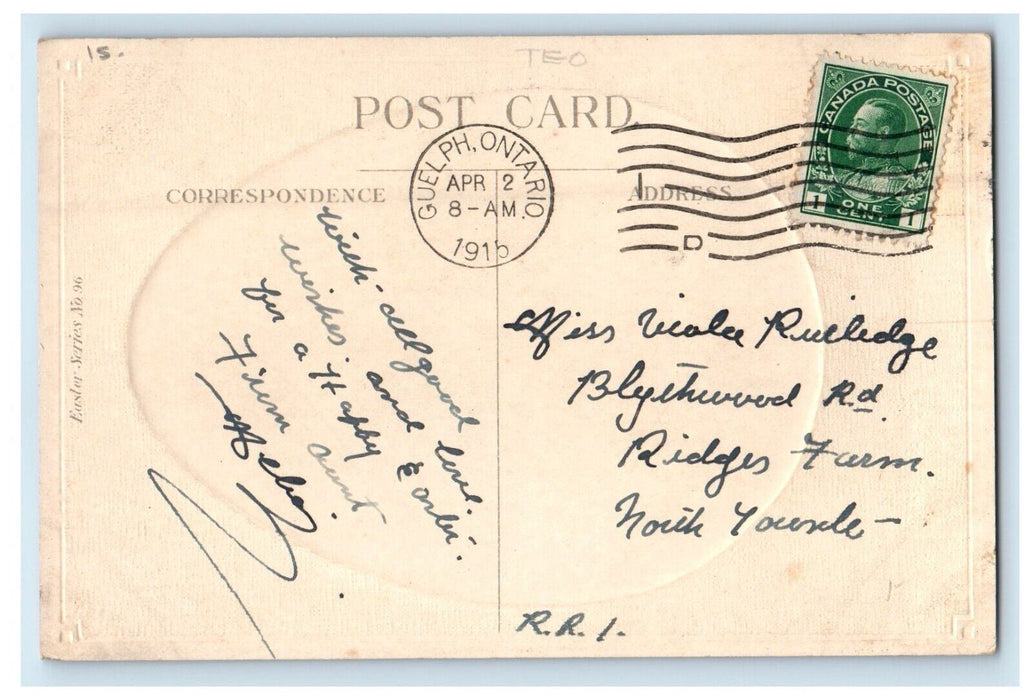 15.
TEO
POST CARD.
CANADA POSTAGE
1 ONE CENT 1
GUELPH, ONTARIO
APR 2
8-AM
1915
D
CORRESPONDENCE
ADDRESS
Easter Series No 96
With all good
wishes and love.
for a Happy Easter.
From Aunt
Miss Rutledge
Blythwood Rd
Ridges Farm.
North Toronto
R.R.1.